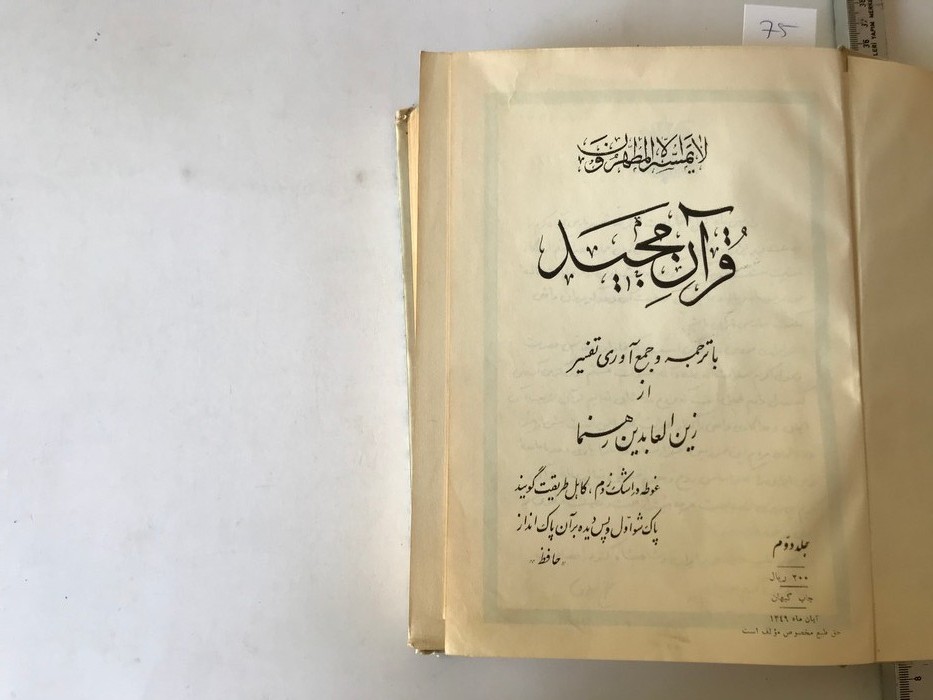 75
لا يمسه الا المطهرون
قُرآنِ مجید
با ترجمه و جمع آوری تفسیر
از
زین العابدین رهنما
غوطه در اشک زدم، کاهل طریقت گویند
پاک شو اول و پس دیده بر آن پاک انداز
"حافظ"
جلد دوّم
۳۰۰ ریال
چاپ کیهان
آبان ماه ۱۳۴۹
حق طبع مخصوص مؤلف است